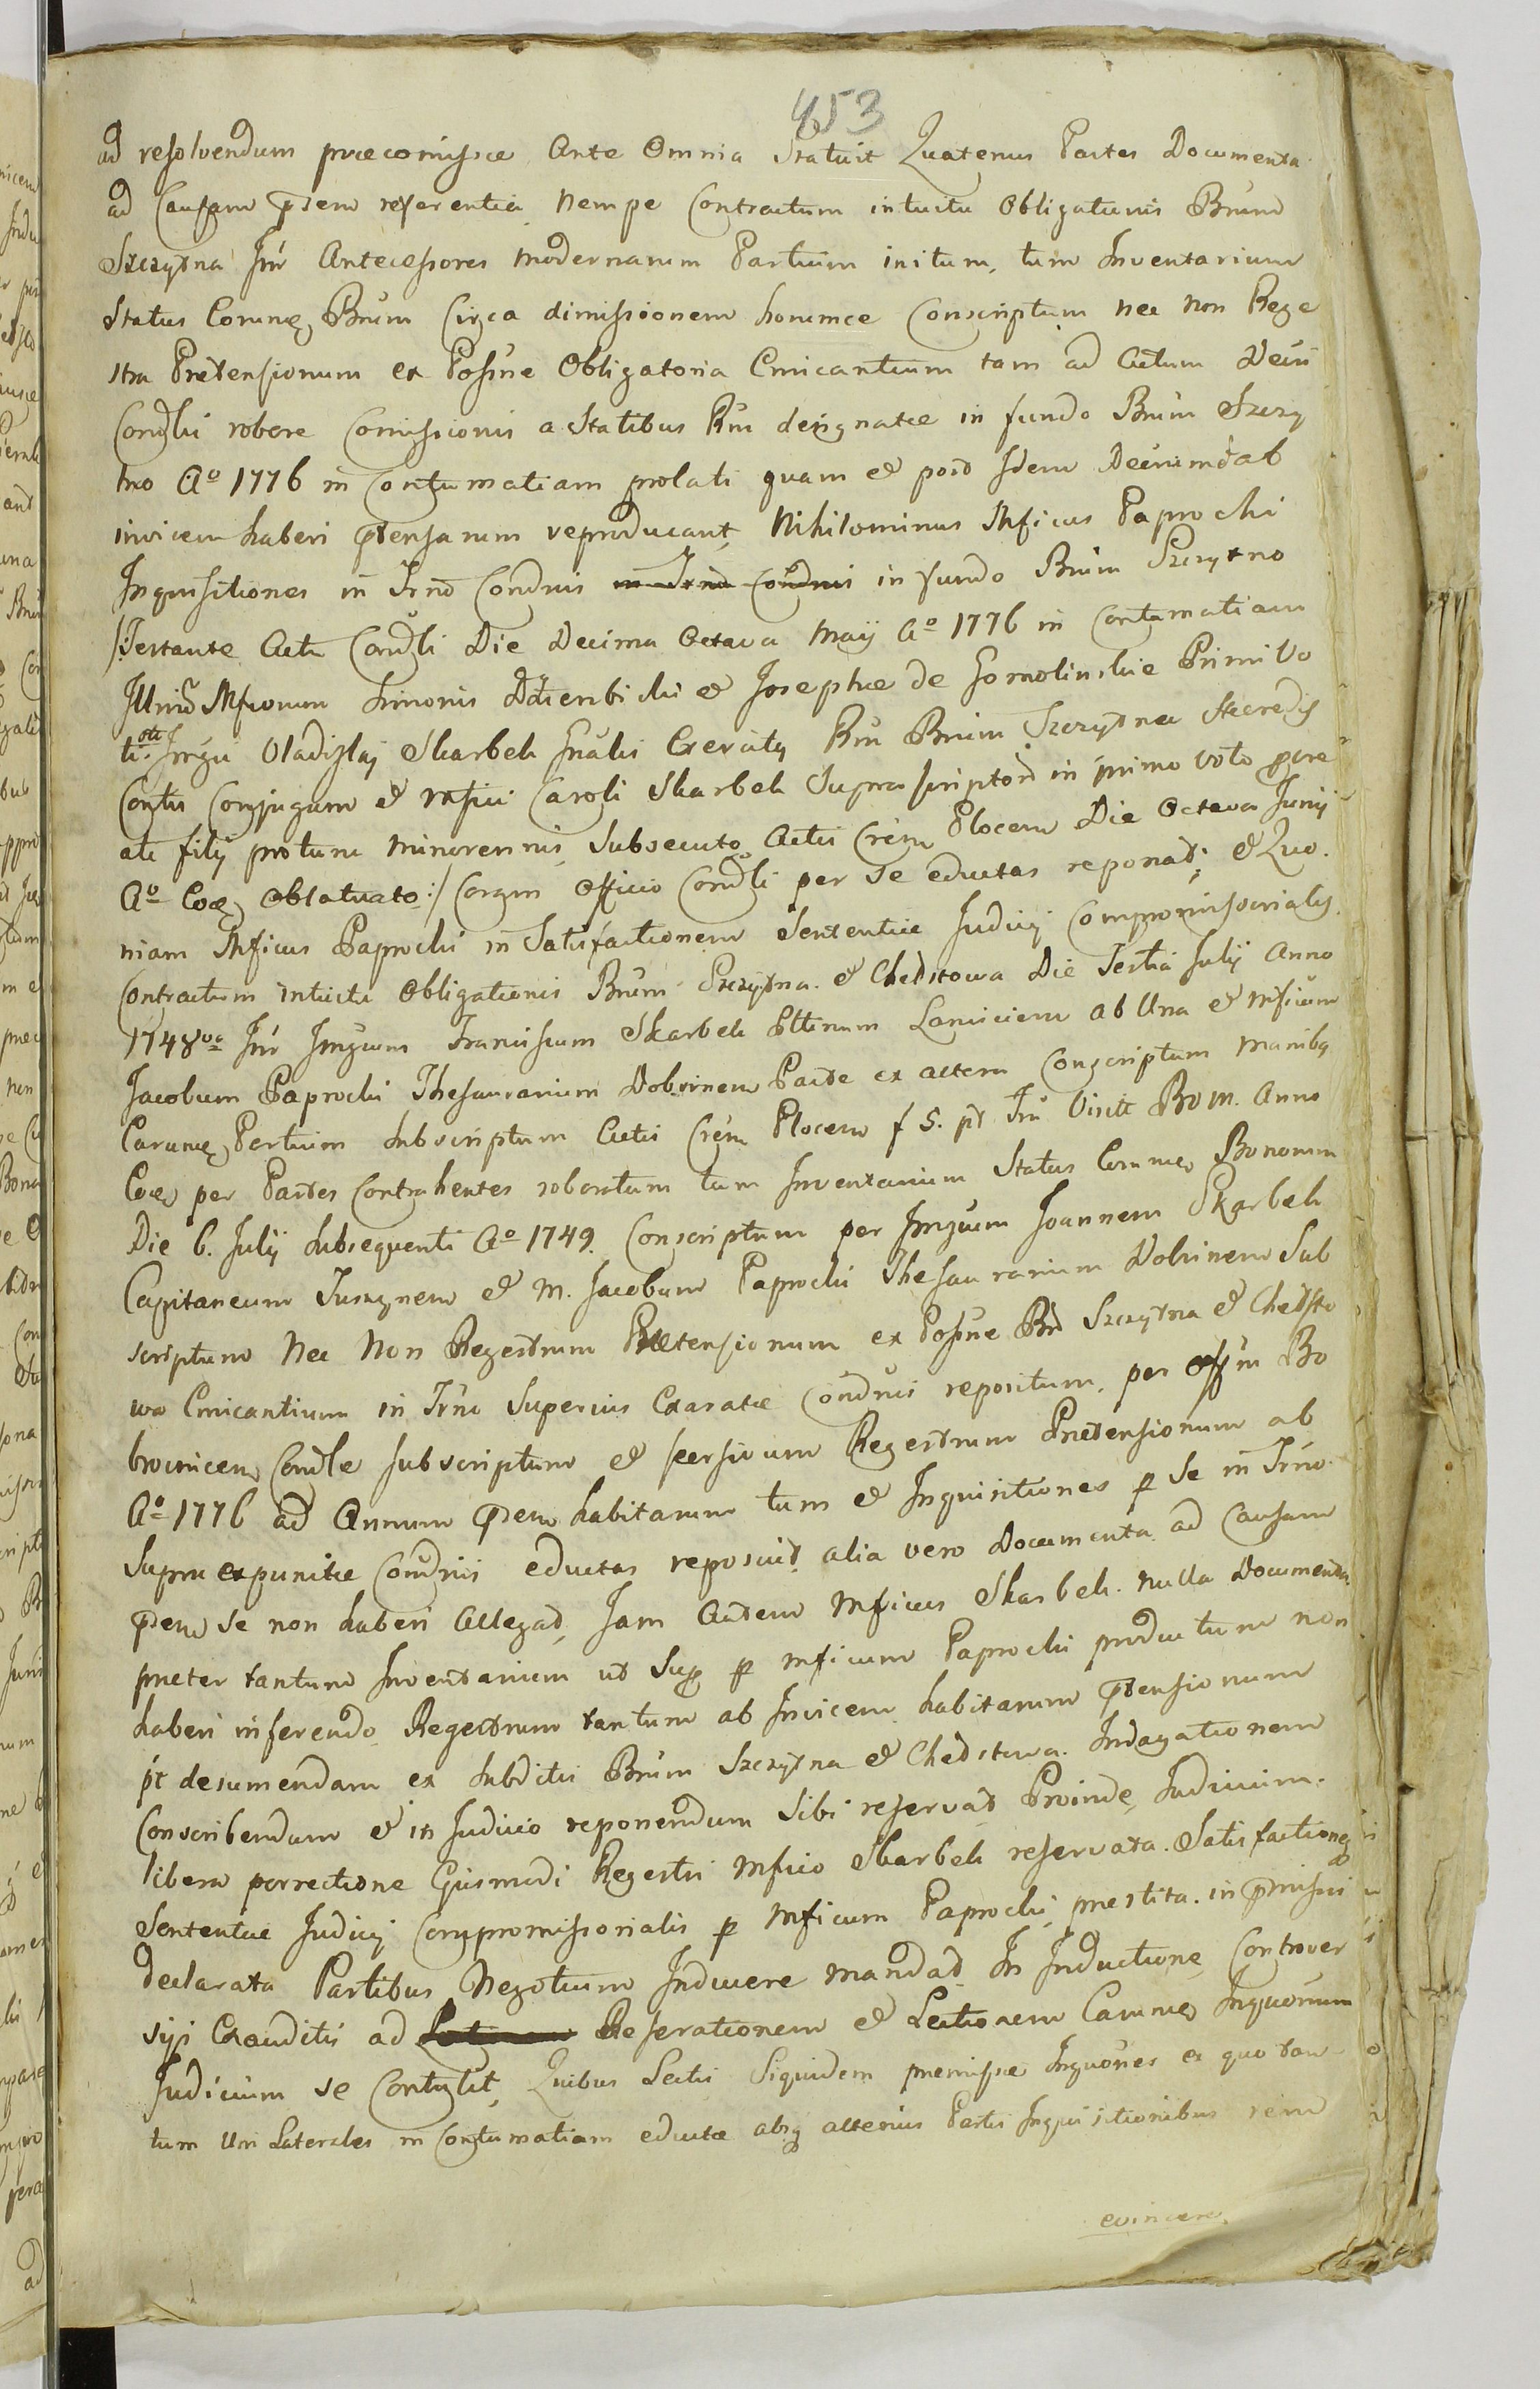 453
ad resolvendum præcomissæ Ante Omnia Statuit Quatenus Partes Documenta
ad Causam pntem referentia Nempe Contractum intuitu Obligationis Bnum
Szczytna Inr Antecessores modernarum Partium initum, tum Inventarium
Status Eorumq Bnum Circa dimissionem horumce Conscriptum nec non Rege
stra Pretensionum ex Possne Obligatoria Emicantium tam ad Actum Decti
Condli robore Comissionis a Statibus Rni designatæ in fundo Bnum Szczy
tno Ao 1776 in Contumatiam prolati quam et post Idem Decrum ab
invicem haberi ptensarum reproducant, Nihilominus Mficus Paprocki
Inquisitiones in Trno Condnis in Trno Condnis in fundo Bnum Szczytno
/:Testante Actu Condli Die Decima Octava Maji Ao 1776 in Contumatiam
Mficorum Simonis et Josephæ de Primi Vo
ti Olim Mgci Vladislaj Skarbek Gnalis Exercitq Rni Bnum Szczytna Hæredis
Contis Conjugum et Mfici Caroli Skarbek Suprascriptor in primo Voto pcre
ati filij protunc minorennis, Subsecuto Actis Crem Plocen Die Octava Junij
Ao Eoq Oblatuato:/ Coram Officio Condli per Se eductas reponat; et Quo
niam Mficus Paprocki in Satisfactionem Sententiæ Judicij Compromissorialis
Contractum intuitu Obligationis Bnum Szczytna et Chedstowa Die Tertia Julij Anno
1748vo Inr Mgcum Franciscum Skarbek Pttinum Lanicien ab Una et Mficum
Jacobum Paprocki Thesaurarium Dobrinen Parte ex altera Conscriptum Manibq
Earumq Partium Subscriptum Actis Crem Plocen f 5. pt Fm Visit BVM. Anno
Eoq per Partes Contrahentes roboratum tum Inventarium Status Eorumq Bonorum
Die 6. Julij Subsequenti Ao 1749. Conscriptum per Mgcum Joannem Skarbek
Capitaneum Tuszynen et M. Jacobum Paprocki Thesaurarium Dobrinen Sub
scriptum Nec Non Regestrum Prætensionum ex Possne Bn Szczytna et Chedsto
wa Emicantium in Trno Superius Exaratæ Condnis repositum, per Offm Bo
brovnicen Condle subscriptum et Seorsivum Regestrum Pretensionum ab
Ao 1776 ad Annum pntem habitarum tum et Inquisitiones p Se in Trno
Supra expunitæ Condnis eductas reposuit, alia vero Documenta ad Causam
pntem Se non haberi Allegat, Jam Autem Mficus Skarbek. Nulla Documenta
preter tantum Inventarium ut Sup p Mficum Paprocki productum non
haberi inferendo Regestrum tantum ab Invicem habitarum ptensionum
pt desumendam ex Subditis Bnum Szczytna et Chedstowa. Indagationem
Conscribendum et in Judicio reponendum Sibi reservat Proinde, Judicium
libera porrectione Ejusmodi Regestri Mfico Skarbek reservata. Satisfactioneq
Sententiæ Judicij Compromissorialis p Mficum Paprocki prestita. in pmissis
declarata Partibus Negotium Inducere mandat In Inductione Controver
sijs Exauditis ad Reserationem et Lectionem Earumq Inquonum
Judicium se Contulit, Quibus Lectis Siquidem premissæ Inquones ex quo tan
tum Uni Laterales in Contumatiam eductæ absq alterius Partis Inquisitionibus rem
evincere